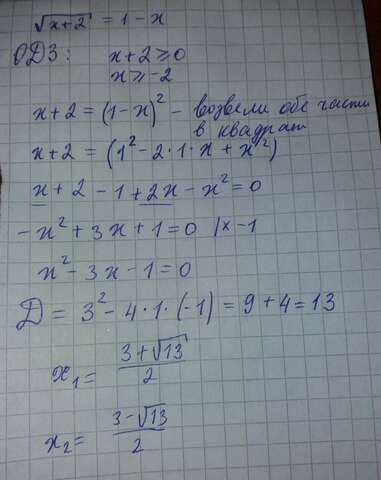 √x+2 = 1 - x
ОДЗ: x+2 ⩾ 0
x ⩾ -2
x+2 = (1-x)² - возвели обе части
в квадрат
x+2 = (1² - 2·1·x + x²)
x + 2 - 1 + 2x - x² = 0
-x² + 3x + 1 = 0 |x -1
x² - 3x - 1 = 0
Д = 3² - 4·1·(-1) = 9 + 4 = 13
x₁ = 3+√13 / 2
x₂ = 3-√13 / 2